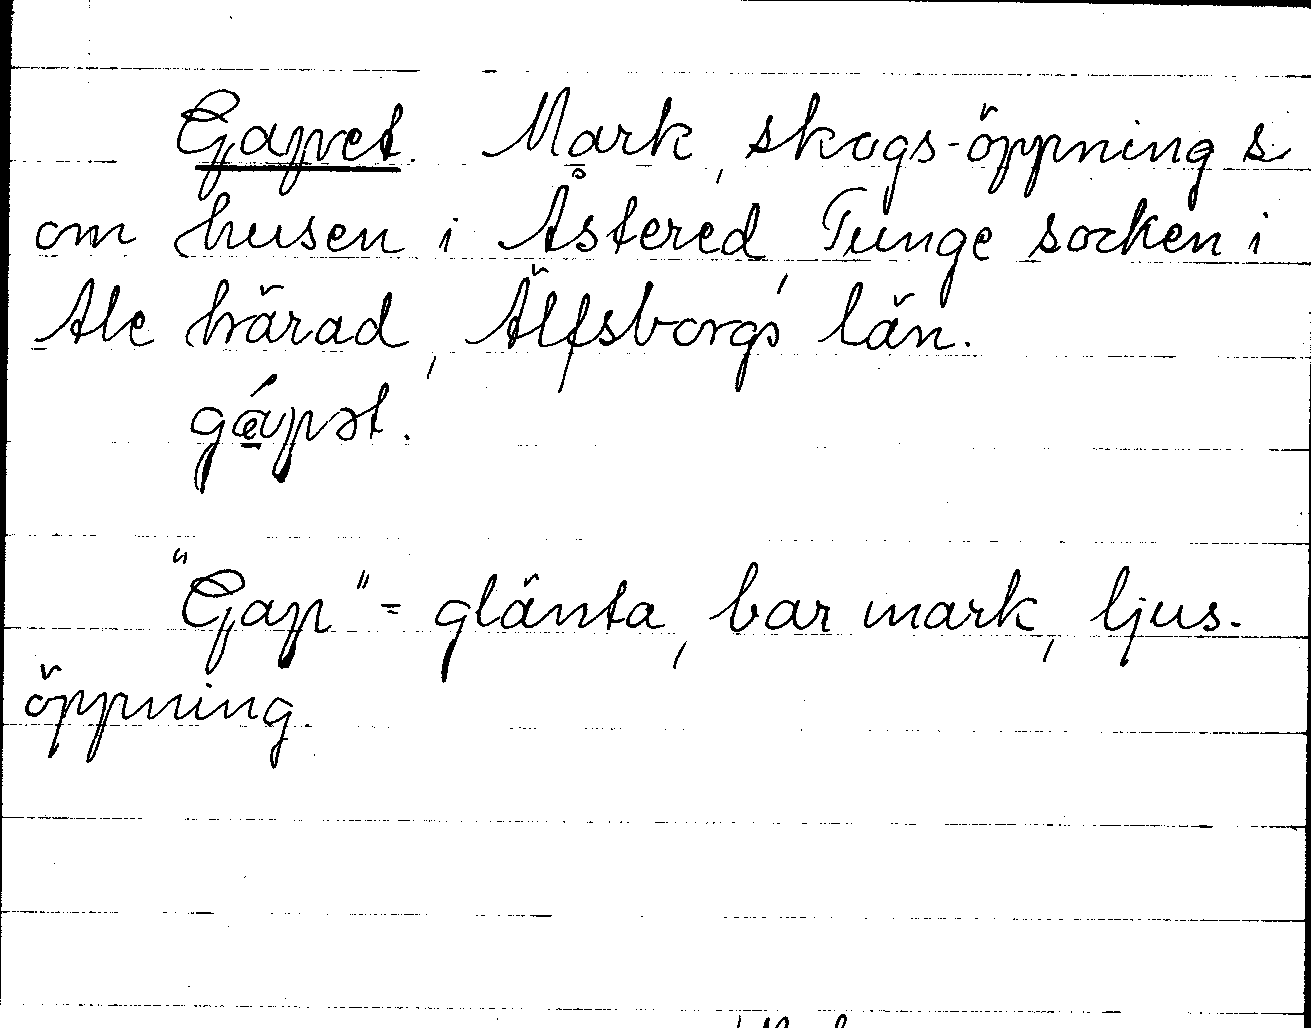 Gapet. Mark, skogs-öppning s.
om husen i Åstered, Tunge socken i
Ale härad, Älfsborgs län.
"Gap" = glänta, bar mark, ljus-
öppning.